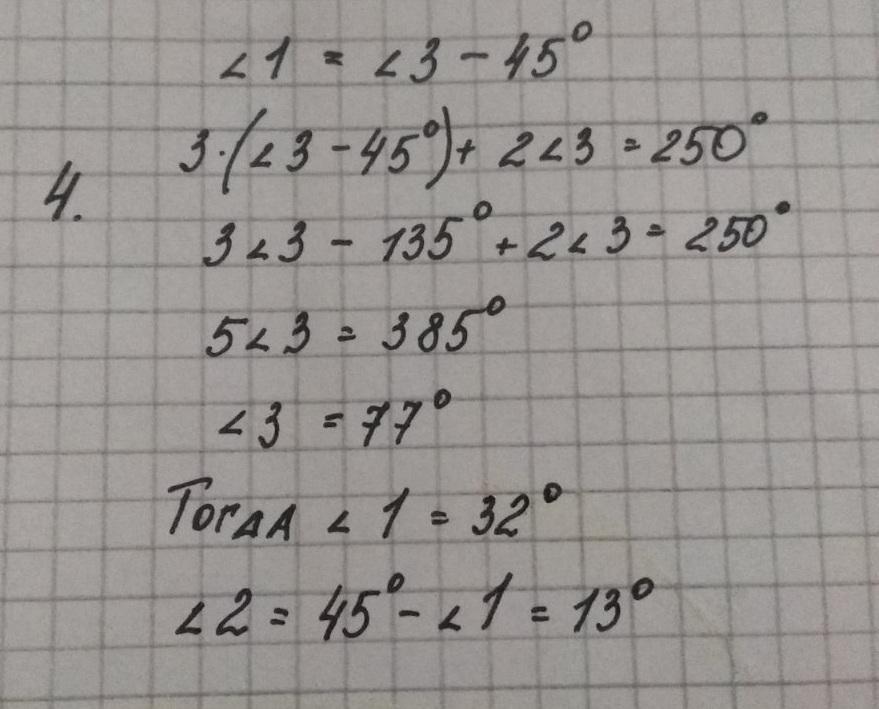 ∠1 = ∠3 - 45°
3·(∠3 - 45°) + 2∠3 = 250°
4.
3∠3 - 135° + 2∠3 = 250°
5∠3 = 385°
∠3 = 77°
Тогда ∠1 = 32°
∠2 = 45° - ∠1 = 13°